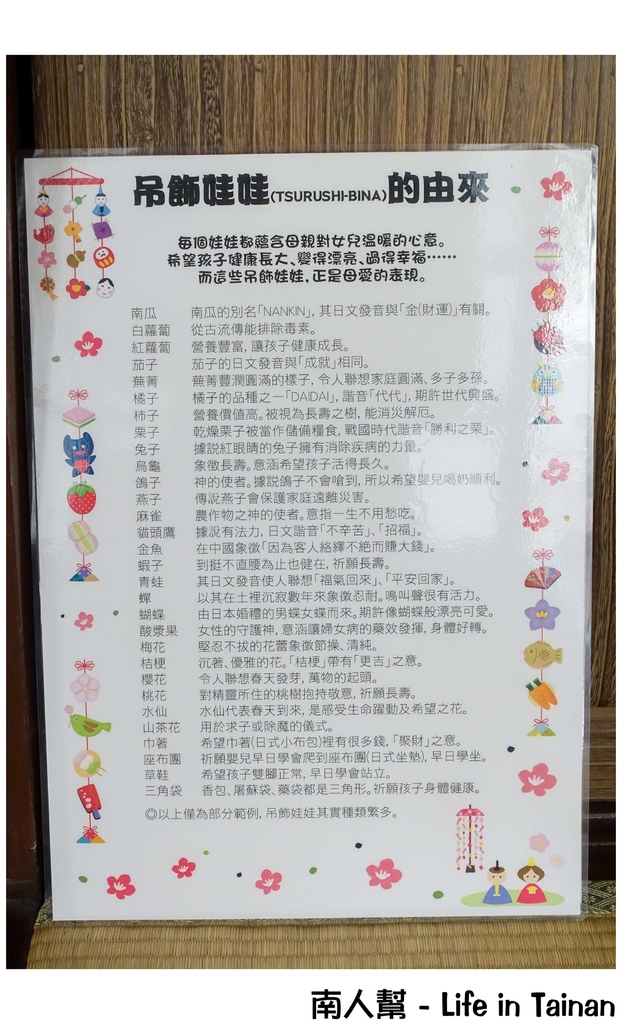 吊飾娃娃(TSURUSHI-BINA)的由來
每個娃娃都蘊含母親對女兒溫暖的心意。
希望孩子健康長大、變得漂亮、過得幸福……
而這些吊飾娃娃,正是母愛的表現。
南瓜 南瓜的別名「NANKIN」, 其日文發音與「金(財運)」有關。
白蘿蔔 從古流傳能排除毒素。
紅蘿蔔 營養豐富, 讓孩子健康成長。
茄子 茄子的日文發音與「成就」相同。
蕪菁 蕪菁豐潤圓滿的樣子, 令人聯想家庭圓滿、多子多孫。
橘子 橘子的品種之一「DAIDAI」, 諧音「代代」, 期許世代興盛。
柿子 營養價值高。被視為長壽之樹, 能消災解厄。
栗子 乾燥栗子被當作儲備糧食, 戰國時代諧音「勝利之栗」。
兔子 據說紅眼睛的兔子擁有消除疾病的力量。
烏龜 象徵長壽。意涵希望孩子活得長久。
鴿子 神的使者。據說鴿子不會嗆到, 所以希望嬰兒喝奶順利。
燕子 傳說燕子會保護家庭遠離災害。
麻雀 農作物之神的使者。意指一生不用愁吃。
貓頭鷹 據說有法力, 日文諧音「不辛苦」、「招福」。
金魚 在中國象徵「因為客人絡繹不絶而賺大錢」。
蝦子 到挺不直腰為止也健在, 祈願長壽。
青蛙 其日文發音使人聯想「福氣回來」、「平安回家」。
蟬 以其在土裡沉寂數年來象徵忍耐。鳴叫聲很有活力。
蝴蝶 由日本婚禮的男蝶女蝶而來。期許像蝴蝶般漂亮可愛。
酸漿果 女性的守護神, 意涵讓婦女病的藥效發揮, 身體好轉。
梅花 堅忍不拔的花蕾象徵節操、清純。
桔梗 沉著、優雅的花。「桔梗」帶有「更吉」之意。
櫻花 令人聯想春天發芽, 萬物的起頭。
桃花 對精靈所住的桃樹抱持敬意, 祈願長壽。
水仙 水仙代表春天到來, 是感受生命躍動及希望之花。
山茶花 用於求子或除魔的儀式。
巾著 希望巾著(日式小布包)裡有很多錢,「聚財」之意。
座布團 祈願嬰兒早日學會爬到座布團(日式坐墊), 早日學坐。
草鞋 希望孩子雙腳正常, 早日學會站立。
三角袋 香包、屠蘇袋、藥袋都是三角形。祈願孩子身體健康。
◎以上僅為部分範例, 吊飾娃娃其實種類繁多。
南人幫 - Life in Tainan